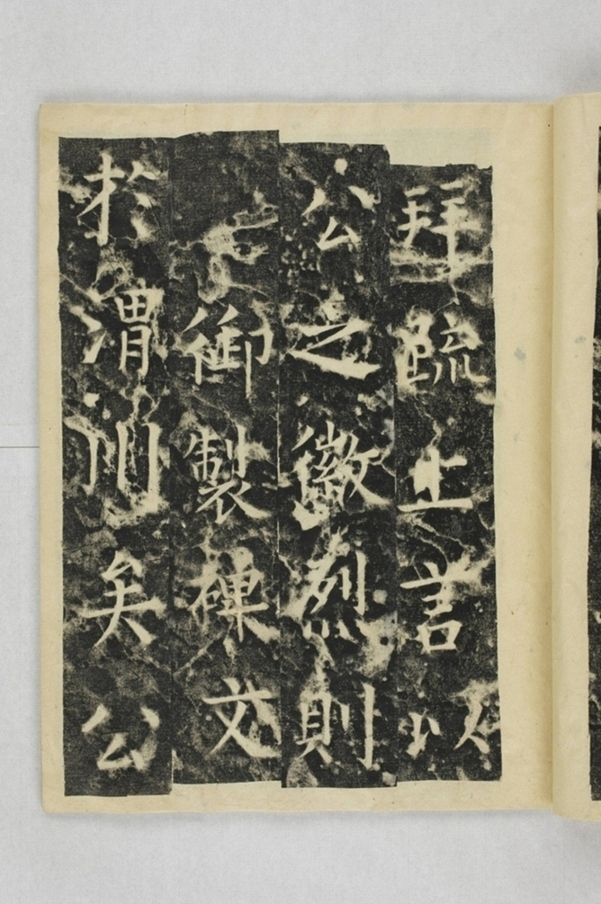 拜疏上言以
公之徽烈則
御製碑文
於渭川矣公